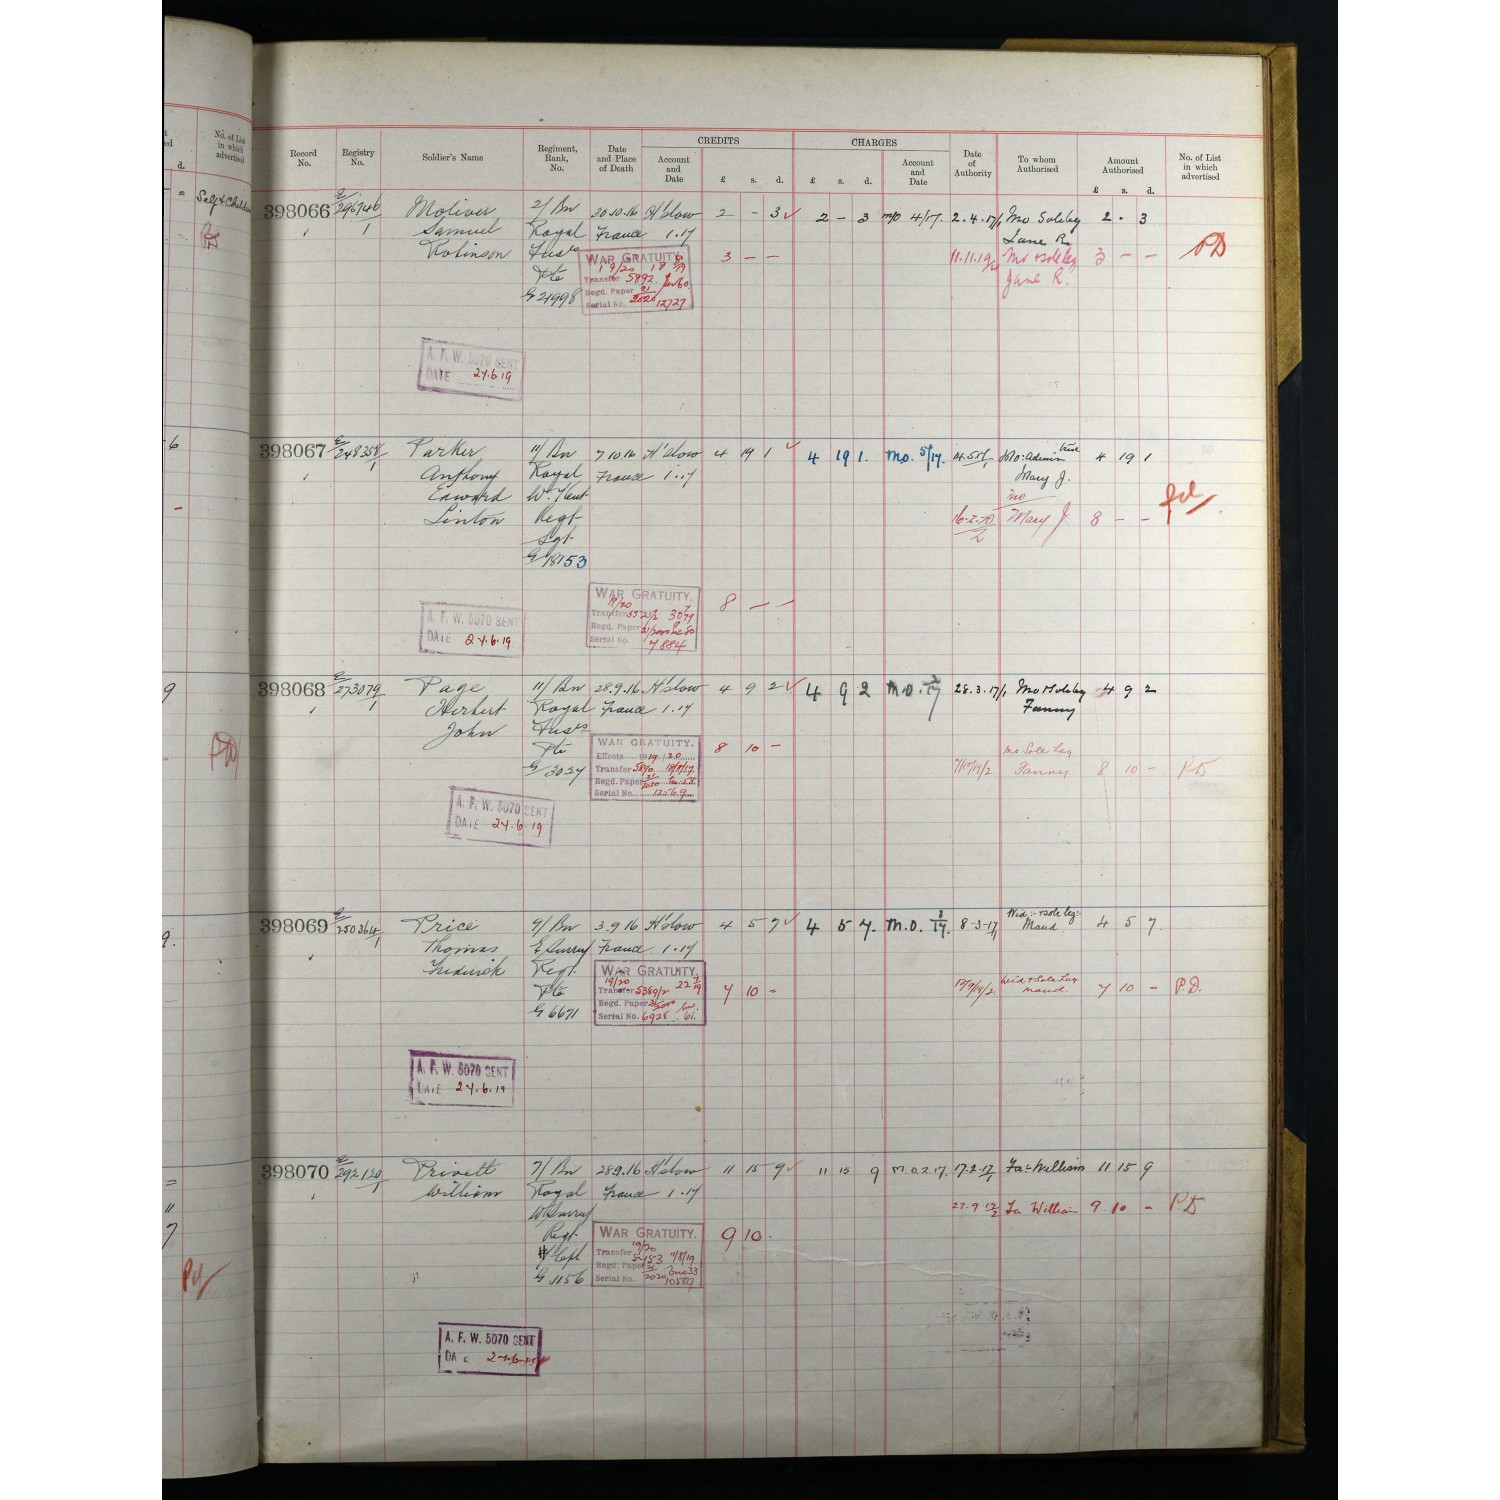 No. of List
in which
advertised
d.
Self & Children
CREDITS
CHARGES
Record
No.
Registry
No.
Soldier's Name
Regiment,
Rank,
No.
Date
and Place
of Death
Account
and
Date
£ s. d.
£ s. d.
Account
and
Date
Date
of
Authority
To whom
Authorised
Amount
Authorised
£ s. d.
No. of List
in which
advertised
398066 E/296746/1 Moliver 2/Bn 20.10.16 H'slow 2 - 3 2 - 3 M/O 4/17. 2.4.17/1 Mo Soleleg 2 . 3
Samuel Royal France 1.17 Jane R.
Robinson Fusrs WAR GRATUITY. 3 - - 11.11.19/2 Mo & soleleg 3 - - PD
Pte 19/20 Jane R.
G 21998 Transfer 5892
Regd. Paper 21/2020
Serial No. 12727
A. F. W. 5070 SENT
DATE 24.6.19
398067 E/248358/1 Parker 11/Bn 7.10.16 H'slow 4 19 1 4 19 1. M.O. 5/17. Mo: Admin trix 4 19 1
Anthony Royal France 1.17 Mary J.
Edward W. Kent Mo
Linton Regt 16-2-20/2 Mary J 8 - - pd
Sgt
G 18753
WAR GRATUITY. 8 - -
19/20
Transfer
Regd. Paper
Serial No. 7884
A. F. W. 5070 SENT
DATE 24.6.19
398068 E/273079/1 Page 11/Bn 28.9.16 H'slow 4 9 2 4 9 2 M.O. 3/17 28.3.17/1 Mo & Soleleg 4 9 2
Herbert Royal France 1.17 Fanny
John Fusrs
Pte WAR GRATUITY. 8 10 - Mo Sole Leg
G 3027 Effects 1919/20 Fanny 8 10 - PD
Transfer 5840
Regd. Paper 21/2020
Serial No. 12569
A. F. W. 5070 SENT
DATE 24.6.19
398069 E/250364/1 Price 9/Bn 3.9.16 H'slow 4 5 7 4 5 7. M.O. 3/17. 8-3-17/1 Wid: & sole leg: 4 5 7.
Thomas E Surrey France 1.17 Maud
Frederick Regt. WAR GRATUITY.
Pte 19/20 7 10 - 17/9/19/2 Wid & Sole Leg 7 10 - P.D.
G 6671 Transfer 5389/2 Maud
Regd. Paper
Serial No. 6928
A. F. W. 5070 SENT
DATE 24.6.19
398070 E/292120/1 Privett 7/Bn 28.9.16 H'slow 11 15 9 11 15 9 M.O.2.17. 17.2.17/1 Fa: William 11 15 9
William Royal France 1.17
W Surrey Fa William 9 10 - PD
Regt. WAR GRATUITY. 9 10 .
L/Cpl 19/20
G 1156 Transfer 5453 7/8/19
Regd. Paper 21/2020
Serial No. 10589
A. F. W. 5070 SENT